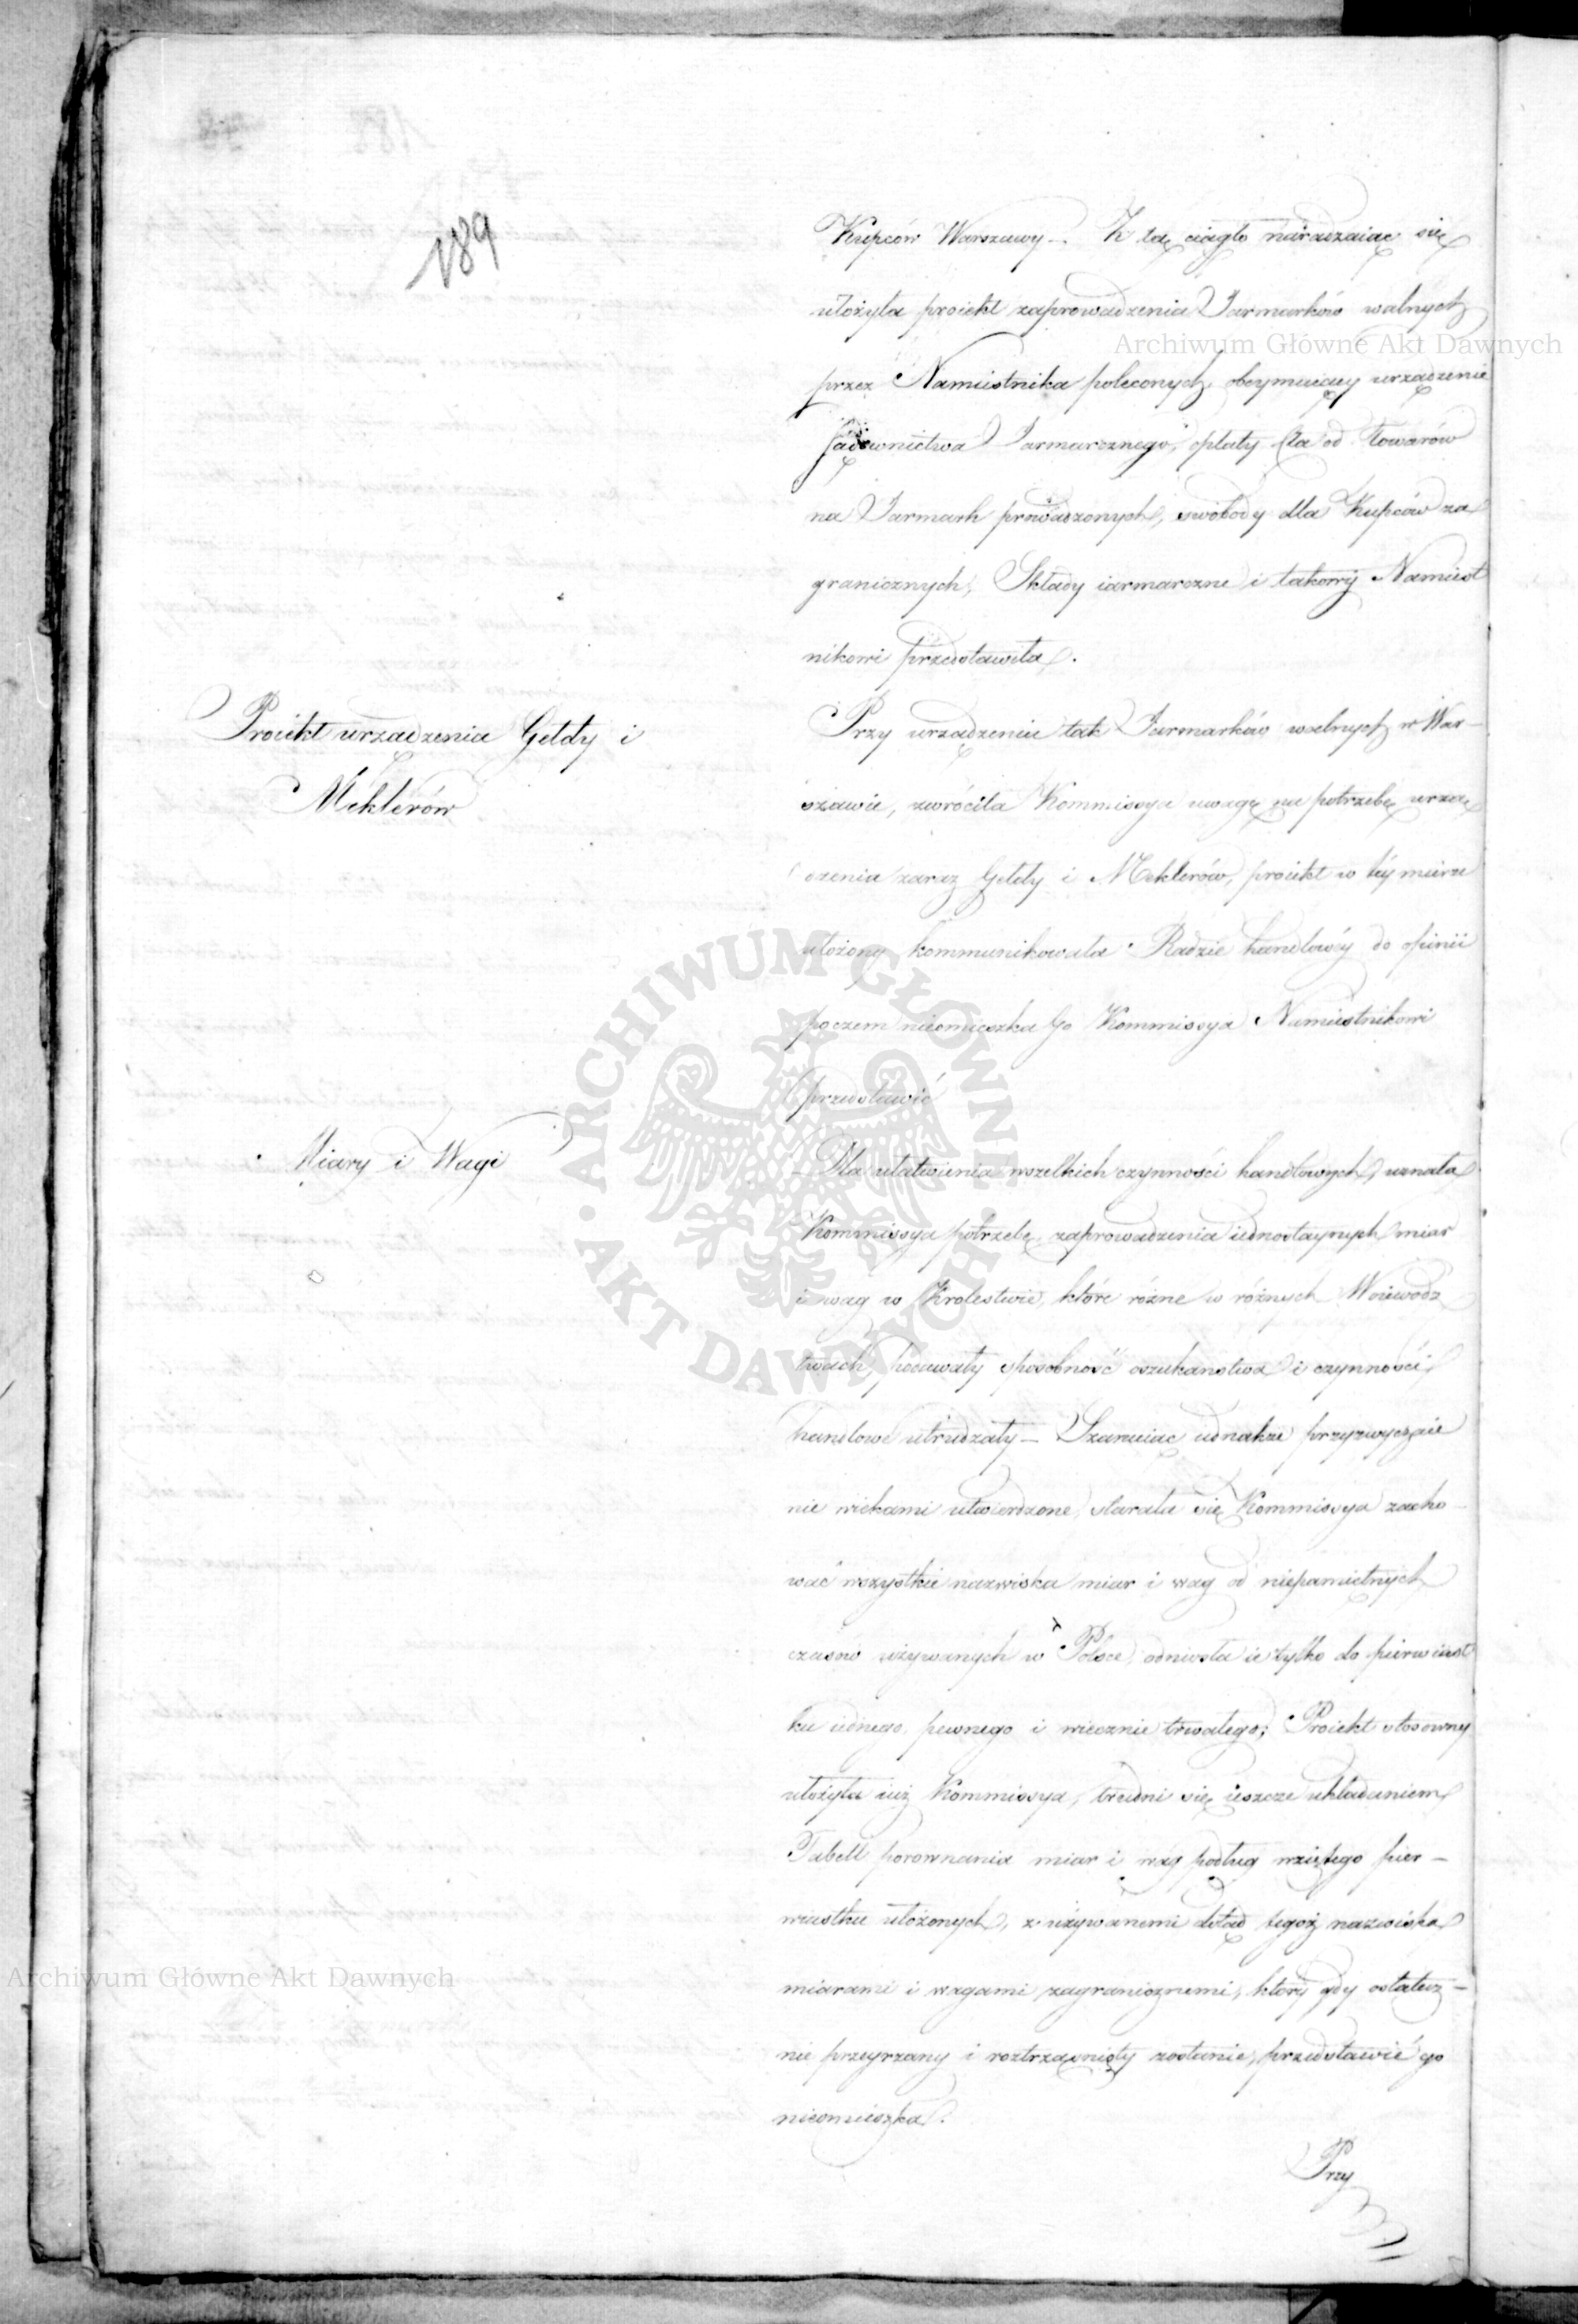 189
Kupców Warszawy – Z tą ciągle naradzaiąc się
ułożyła proiekt zaprowadzenia Jarmarków walnych
przez Namiestnika poleconych, obeymuiący urządzenie
Sądownictwa Jarmarcznego, opłaty Cła od Towarów
na Jarmark prowadzonych, swobody dla Kupców za
granicznych, Składy iarmarczne i takowy Namiest
nikowi przedstawiła.
Proiekt urządzenia Gełdy i
Meklerów
Przy urządzeniu tak Jarmarków walnych w War–
szawie, zwróciła Kommissya uwagę na potrzebę urzą
dzenia zaraz Gełdy i Meklerów, proiekt w téy mierze
ułożony kommunikowała Radzie handlowéy do opinii
poczem nieomieszka go Kommissya Namiestnikowi
przedstawić
Miary i Wagi
– Dla ułatwienia wszelkich czynności handlowych, uznała
Kommissya potrzebę zaprowadzenia iednostaynych miar
i wag w Krolestwie, które różne w różnych Woiewódz
twach, podawały sposobność oszukanstwa i czynności
handlowe utrudzały – Szanuiąc iednakże przyzwyczaie
nie wiekami utwierdzone, starała się Kommissya zacho–
wać wszystkie nazwiska miar i wag od niepamiętnych
czasów używanych w Polsce, odniosła ie tylko do pierwiast
ku iednego, pewnego i wiecznie trwałego; Proiekt stosowny
ułożyła iuż Kommissya, trudni się ieszcze układaniem
Tabell porownania miar i wag podług wziętego pier–
wiastku ułożonych, z używanemi dotąd tegoż nazwiska
miarami i wagami zagranicznemi, który gdy ostatecz–
nie przeyrzany i roztrząśnięty zostanie, przedstawić go
nieomieszka.
Przy
Archiwum Główne Akt Dawnych
ARCHIWUM GŁÓWNE · AKT DAWNYCH ·
Archiwum Główne Akt Dawnych